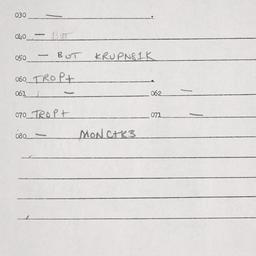 030 —
040 — BUT
050 — BUT KRUPNE1K
060 TROP+
061 — 062 —
070 TROP+ 071 —
080 — MONC+K3